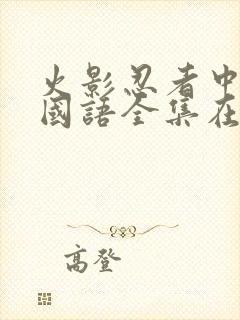 火影忍者中
國語全集在
高登